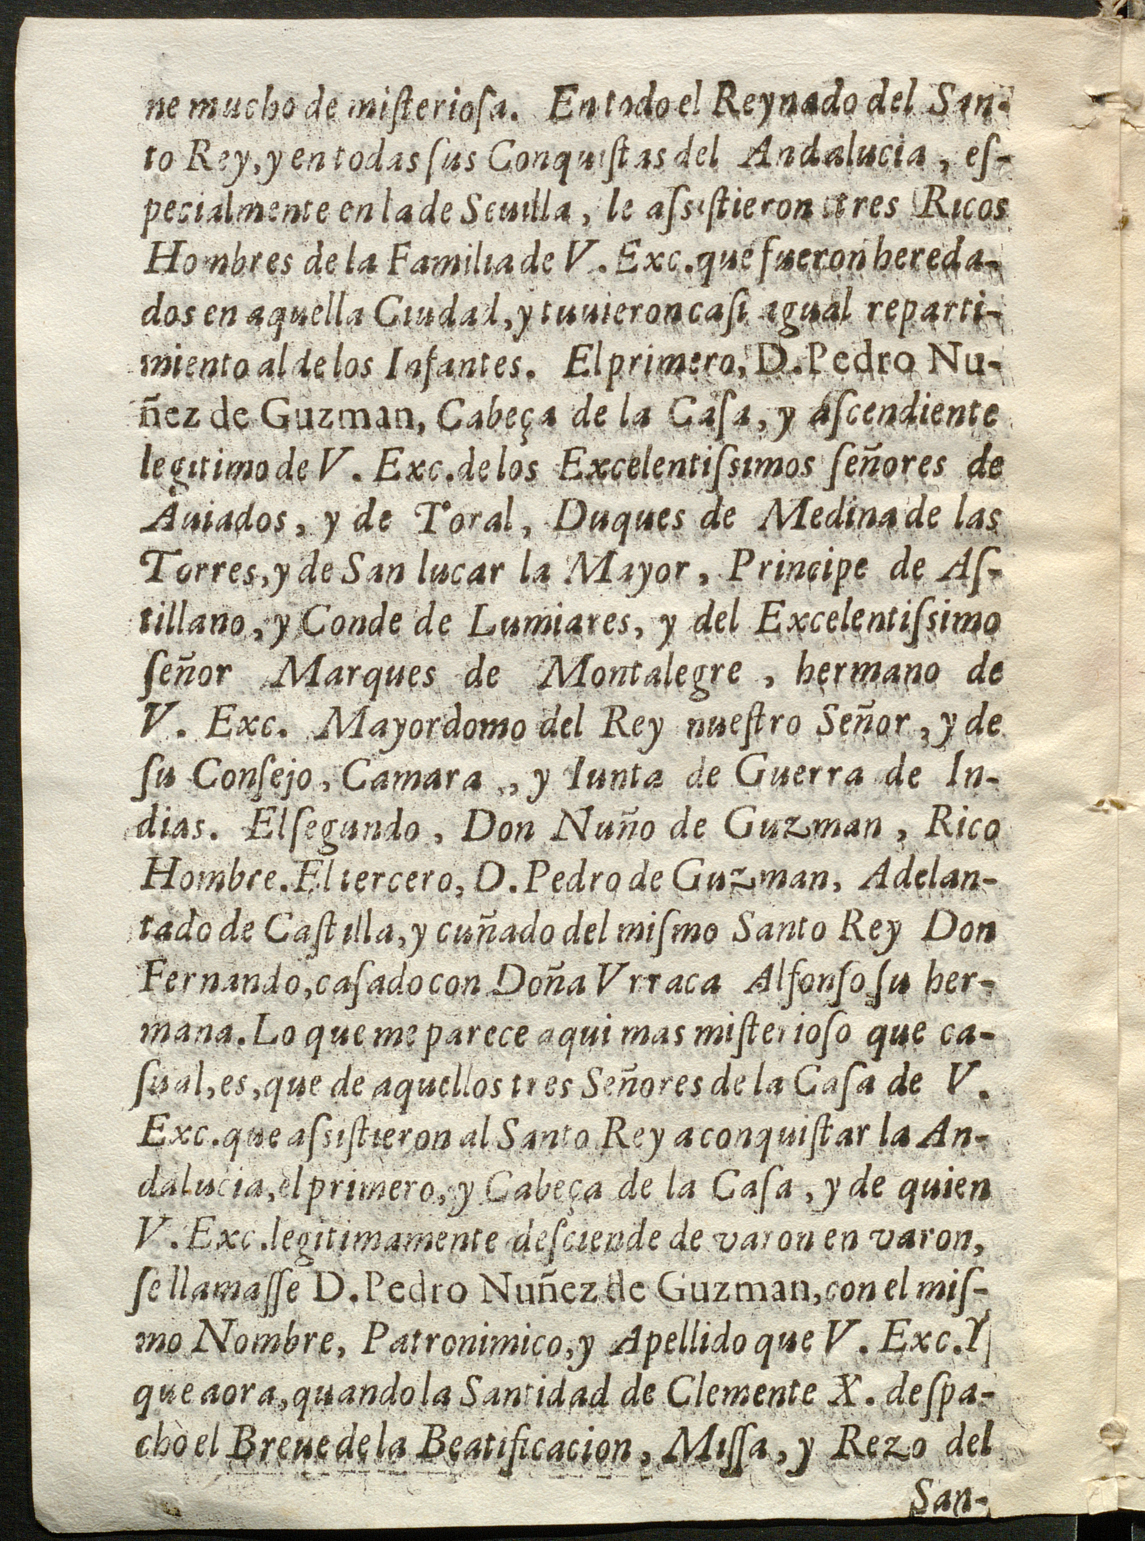 ne mucho de miſterioſa. En todo el Reynado del San-
to Rey, y en todas ſus Conquiſtas del Andalucia, eſ-
pecialmente en la de Seuilla, le aſsiſtieron tres Ricos
Hombres de la Familia de V. Exc. que fueron hereda-
dos en aquella Ciudad, y tuuieron caſi igual reparti-
miento al de los Infantes. El primero, D. Pedro Nu-
ñez de Guzman, Cabeça de la Caſa, y aſcendiente
legitimo de V. Exc. de los Excelentiſsimos ſeñores de
Auiados, y de Toral, Duques de Medina de las
Torres, y de San lucar la Mayor, Principe de Aſ-
tillano, y Conde de Lumiares, y del Excelentiſsimo
ſeñor Marques de Montalegre, hermano de
V. Exc. Mayordomo del Rey nueſtro Señor, y de
ſu Conſejo, Camara, y Iunta de Guerra de In-
dias. El ſegundo, Don Nuño de Guzman, Rico
Hombre. El tercero, D. Pedro de Guzman, Adelan-
tado de Caſtilla, y cuñado del miſmo Santo Rey Don
Fernando, caſado con Doña Vrraca Alfonſo ſu her-
mana. Lo que me parece aqui mas miſterioſo que ca-
ſual, es, que de aquellos tres Señores de la Caſa de V.
Exc. que aſsiſtieron al Santo Rey a conquiſtar la An-
dalucia, el primero, y Cabeça de la Caſa, y de quien
V. Exc. legitimamente deſciende de varon en varon,
ſe llamaſſe D. Pedro Nuñez de Guzman, con el miſ-
mo Nombre, Patronimico, y Apellido que V. Exc. Y
que aora, quando la Santidad de Clemente X. deſpa-
chò el Breue de la Beatificacion, Miſſa, y Rezo del
San-